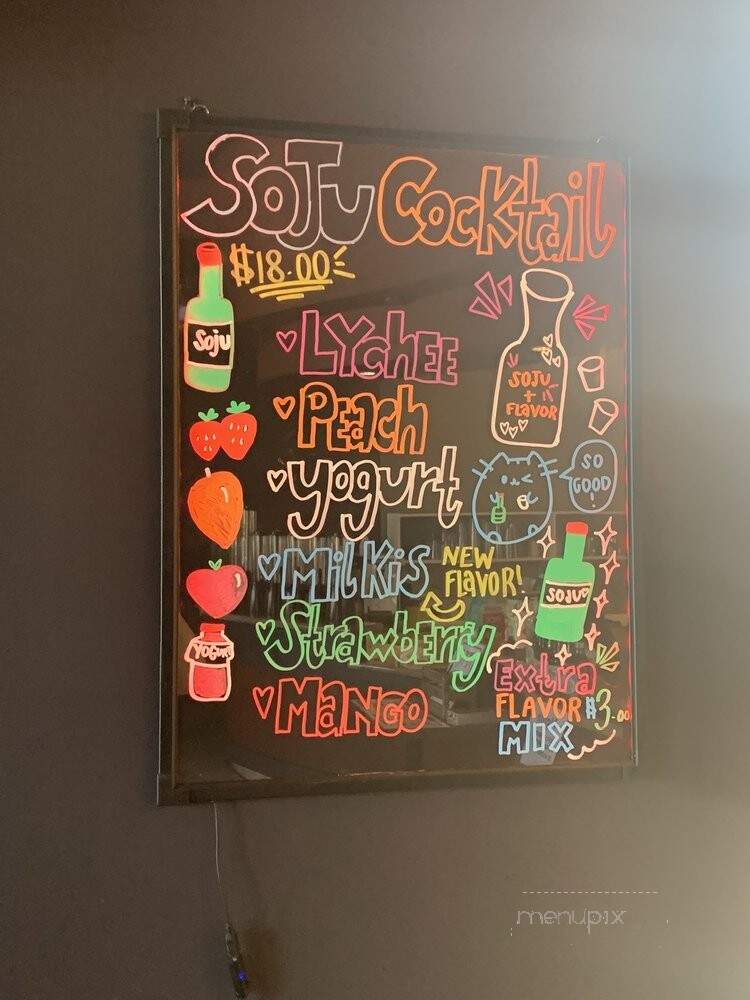 SoJu Cocktail
$18.00
Soju
LYchEE
PEach
SOJU
+
FLAVOR
yogurt
SO
GOOD
!
MilKis
NEW
FLAVOR!
SOJU
StrawbErry
YOGURT
Extra
FLAVOR $3.00
MIX
MANGO
menupix